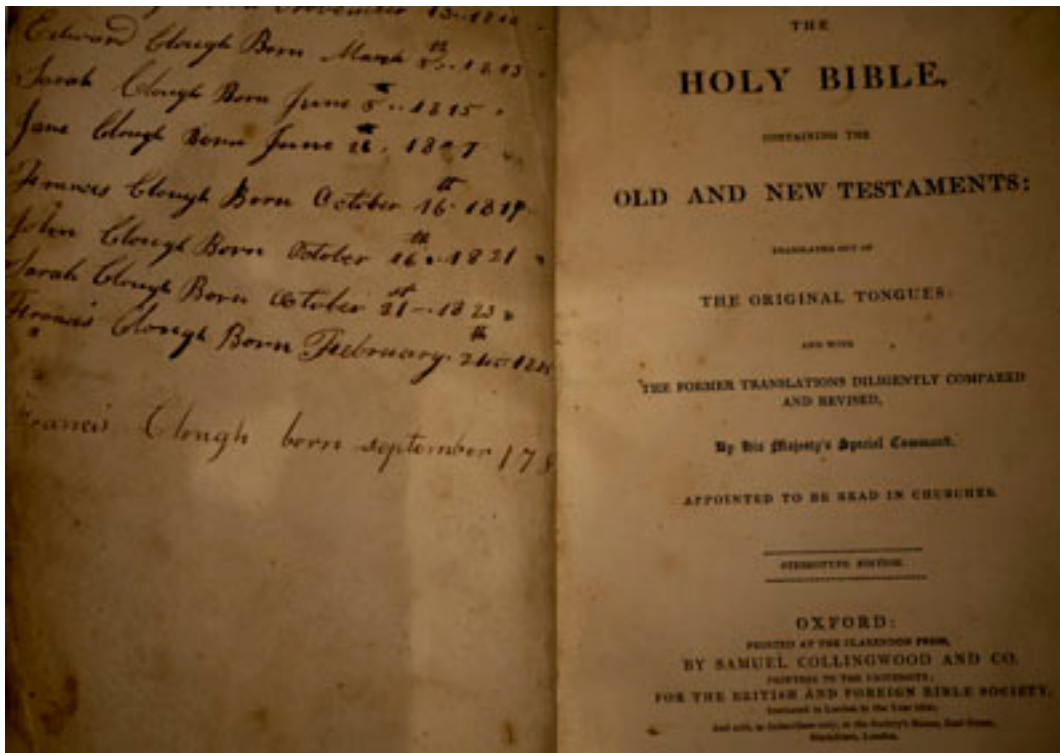 November 13
Edward Clough Born March 1813
Sarah Clough Born June 5 1815
Jane Clough Born June
Francis Clough Born October 16th 1819
John Clough Born October 16th 1821
Sarah Clough Born October 21st 1823
Francis Clough Born February
Francis Clough born september 17
THE
HOLY BIBLE,
CONTAINING THE
OLD AND NEW TESTAMENTS:
TRANSLATED OUT OF
THE ORIGINAL TONGUES:
AND WITH
THE FORMER TRANSLATIONS DILIGENTLY COMPARED
AND REVISED,
By His Majesty's Special Command.
APPOINTED TO BE READ IN CHURCHES.
STEREOTYPE EDITION.
OXFORD:
PRINTED AT THE CLARENDON PRESS,
BY SAMUEL COLLINGWOOD AND CO.
PRINTERS TO THE UNIVERSITY;
FOR THE BRITISH AND FOREIGN BIBLE SOCIETY,
Instituted in London in the Year
And sold, to Subscribers only, at the Society's House, Earl Street,
Blackfriars, London.